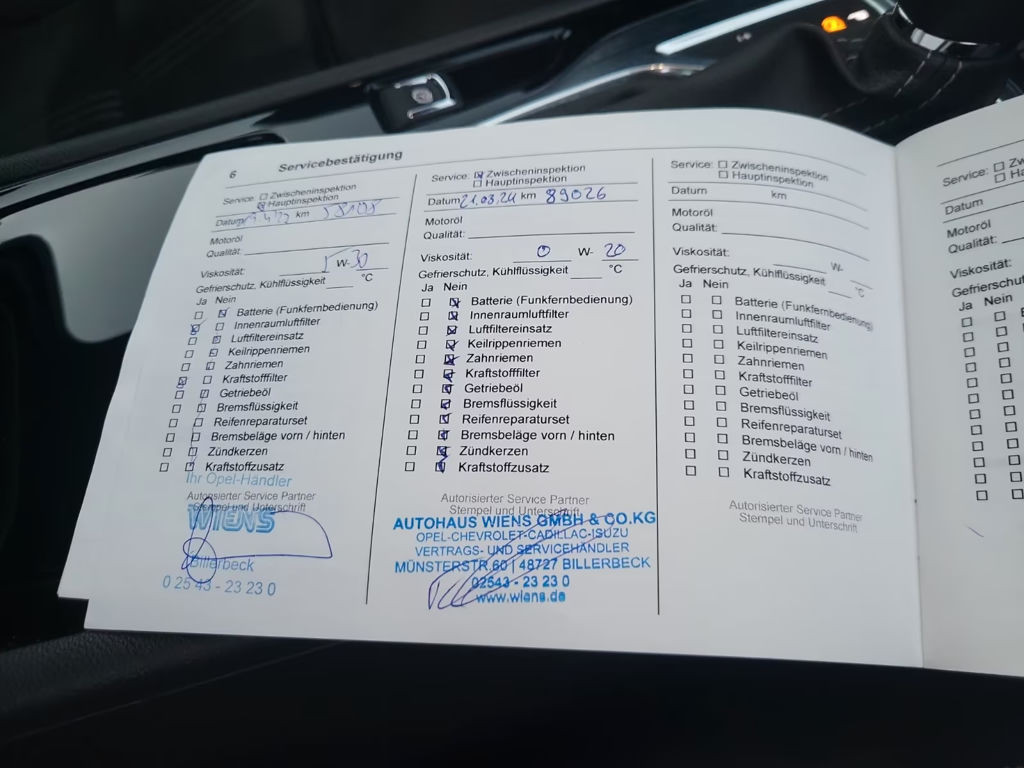 6 Servicebestätigung
Service: Zwischeninspektion
Hauptinspektion
Datum km
Motoröl
Qualität:
Viskosität: 5 W-30
Gefrierschutz, Kühlflüssigkeit °C
Ja Nein
Batterie (Funkfernbedienung)
Innenraumluftfilter
Luftfiltereinsatz
Keilrippenriemen
Zahnriemen
Kraftstofffilter
Getriebeöl
Bremsflüssigkeit
Reifenreparaturset
Bremsbeläge vorn / hinten
Zündkerzen
Kraftstoffzusatz
Ihr Opel-Händler
Autorisierter Service Partner
Stempel und Unterschrift
WIENS
Billerbeck
0 25 43 - 23 23 0
Service: Zwischeninspektion
Hauptinspektion
Datum 21.08.24 km 89026
Motoröl
Qualität:
Viskosität: 0 W- 20
Gefrierschutz, Kühlflüssigkeit °C
Ja Nein
Batterie (Funkfernbedienung)
Innenraumluftfilter
Luftfiltereinsatz
Keilrippenriemen
Zahnriemen
Kraftstofffilter
Getriebeöl
Bremsflüssigkeit
Reifenreparaturset
Bremsbeläge vorn / hinten
Zündkerzen
Kraftstoffzusatz
Autorisierter Service Partner
Stempel und Unterschrift
AUTOHAUS WIENS GMBH & CO.KG
OPEL-CHEVROLET-CADILLAC-ISUZU
VERTRAGS- UND SERVICEHÄNDLER
MÜNSTERSTR.60 | 48727 BILLERBECK
02543 - 23 23 0
www.wiens.de
Service: Zwischeninspektion
Hauptinspektion
Datum km
Motoröl
Qualität:
Viskosität: W-
Gefrierschutz, Kühlflüssigkeit °C
Ja Nein
Batterie (Funkfernbedienung)
Innenraumluftfilter
Luftfiltereinsatz
Keilrippenriemen
Zahnriemen
Kraftstofffilter
Getriebeöl
Bremsflüssigkeit
Reifenreparaturset
Bremsbeläge vorn / hinten
Zündkerzen
Kraftstoffzusatz
Autorisierter Service Partner
Stempel und Unterschrift
Service:
Datum
Motoröl
Qualität:
Viskosität:
Ja Nein